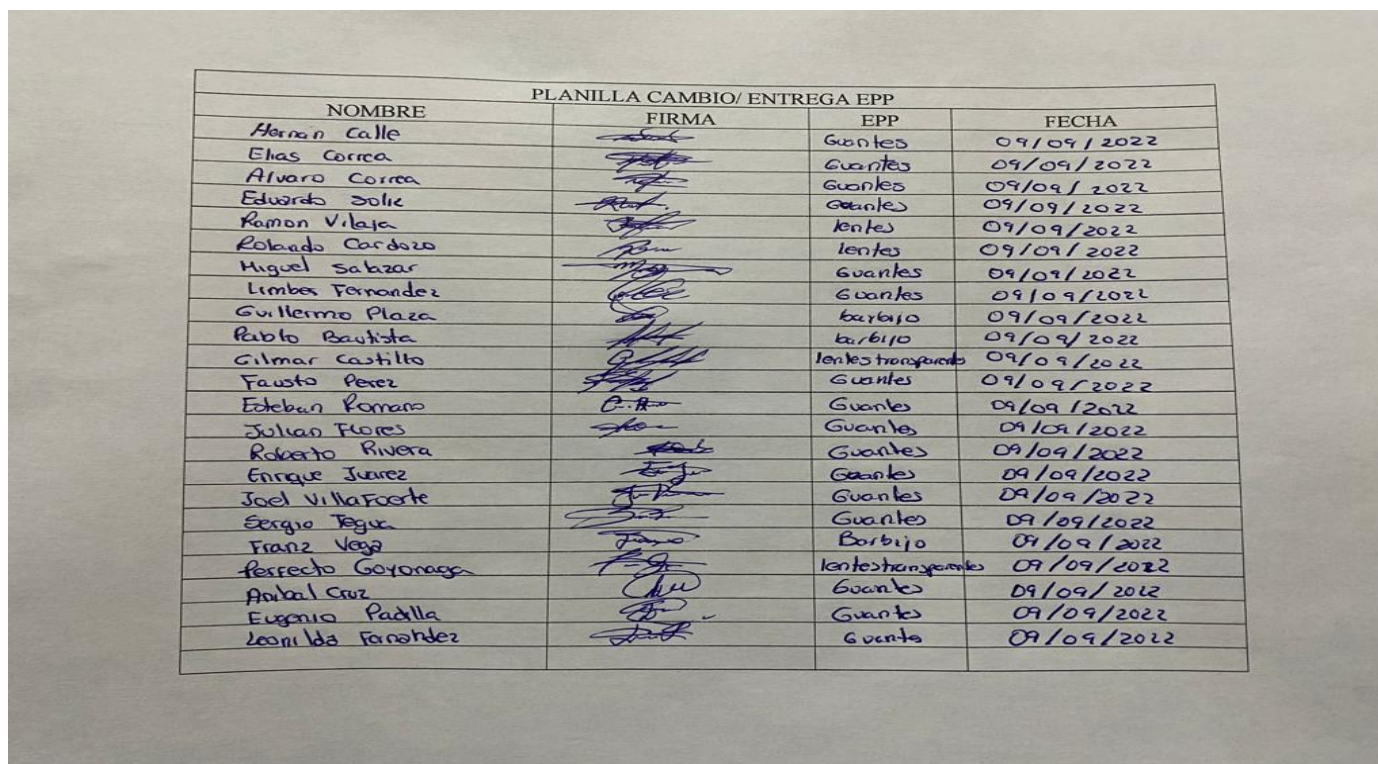 PLANILLA CAMBIO/ ENTREGA EPP
NOMBRE FIRMA EPP FECHA
Hernan Calle Guantes 09/09/2022
Elias Correa Guantes 09/09/2022
Alvaro Correa Guantes 09/09/2022
Eduardo Solis Guantes 09/09/2022
Ramon Vilaja lentes 09/09/2022
Rolando Cardozo lentes 09/09/2022
Miguel Salazar Guantes 09/09/2022
Limber Fernandez Guantes 09/09/2022
Guillermo Plaza barbijo 09/09/2022
Pablo Bautista barbijo 09/09/2022
Gilmar Castillo lentes transparentes 09/09/2022
Fausto Perez Guantes 09/09/2022
Esteban Romano Guantes 09/09/2022
Julian Flores Guantes 09/09/2022
Roberto Rivera Guantes 09/09/2022
Enrique Juarez Guantes 09/09/2022
Joel Villafoerte Guantes 09/09/2022
Sergio Tegua Guantes 09/09/2022
Franz Vega Barbijo 09/09/2022
Perfecto Goyonaga lentes transparentes 09/09/2022
Anibal Cruz Guantes 09/09/2022
Eugenio Padilla Guantes 09/09/2022
Leonilda Guante 09/09/2022